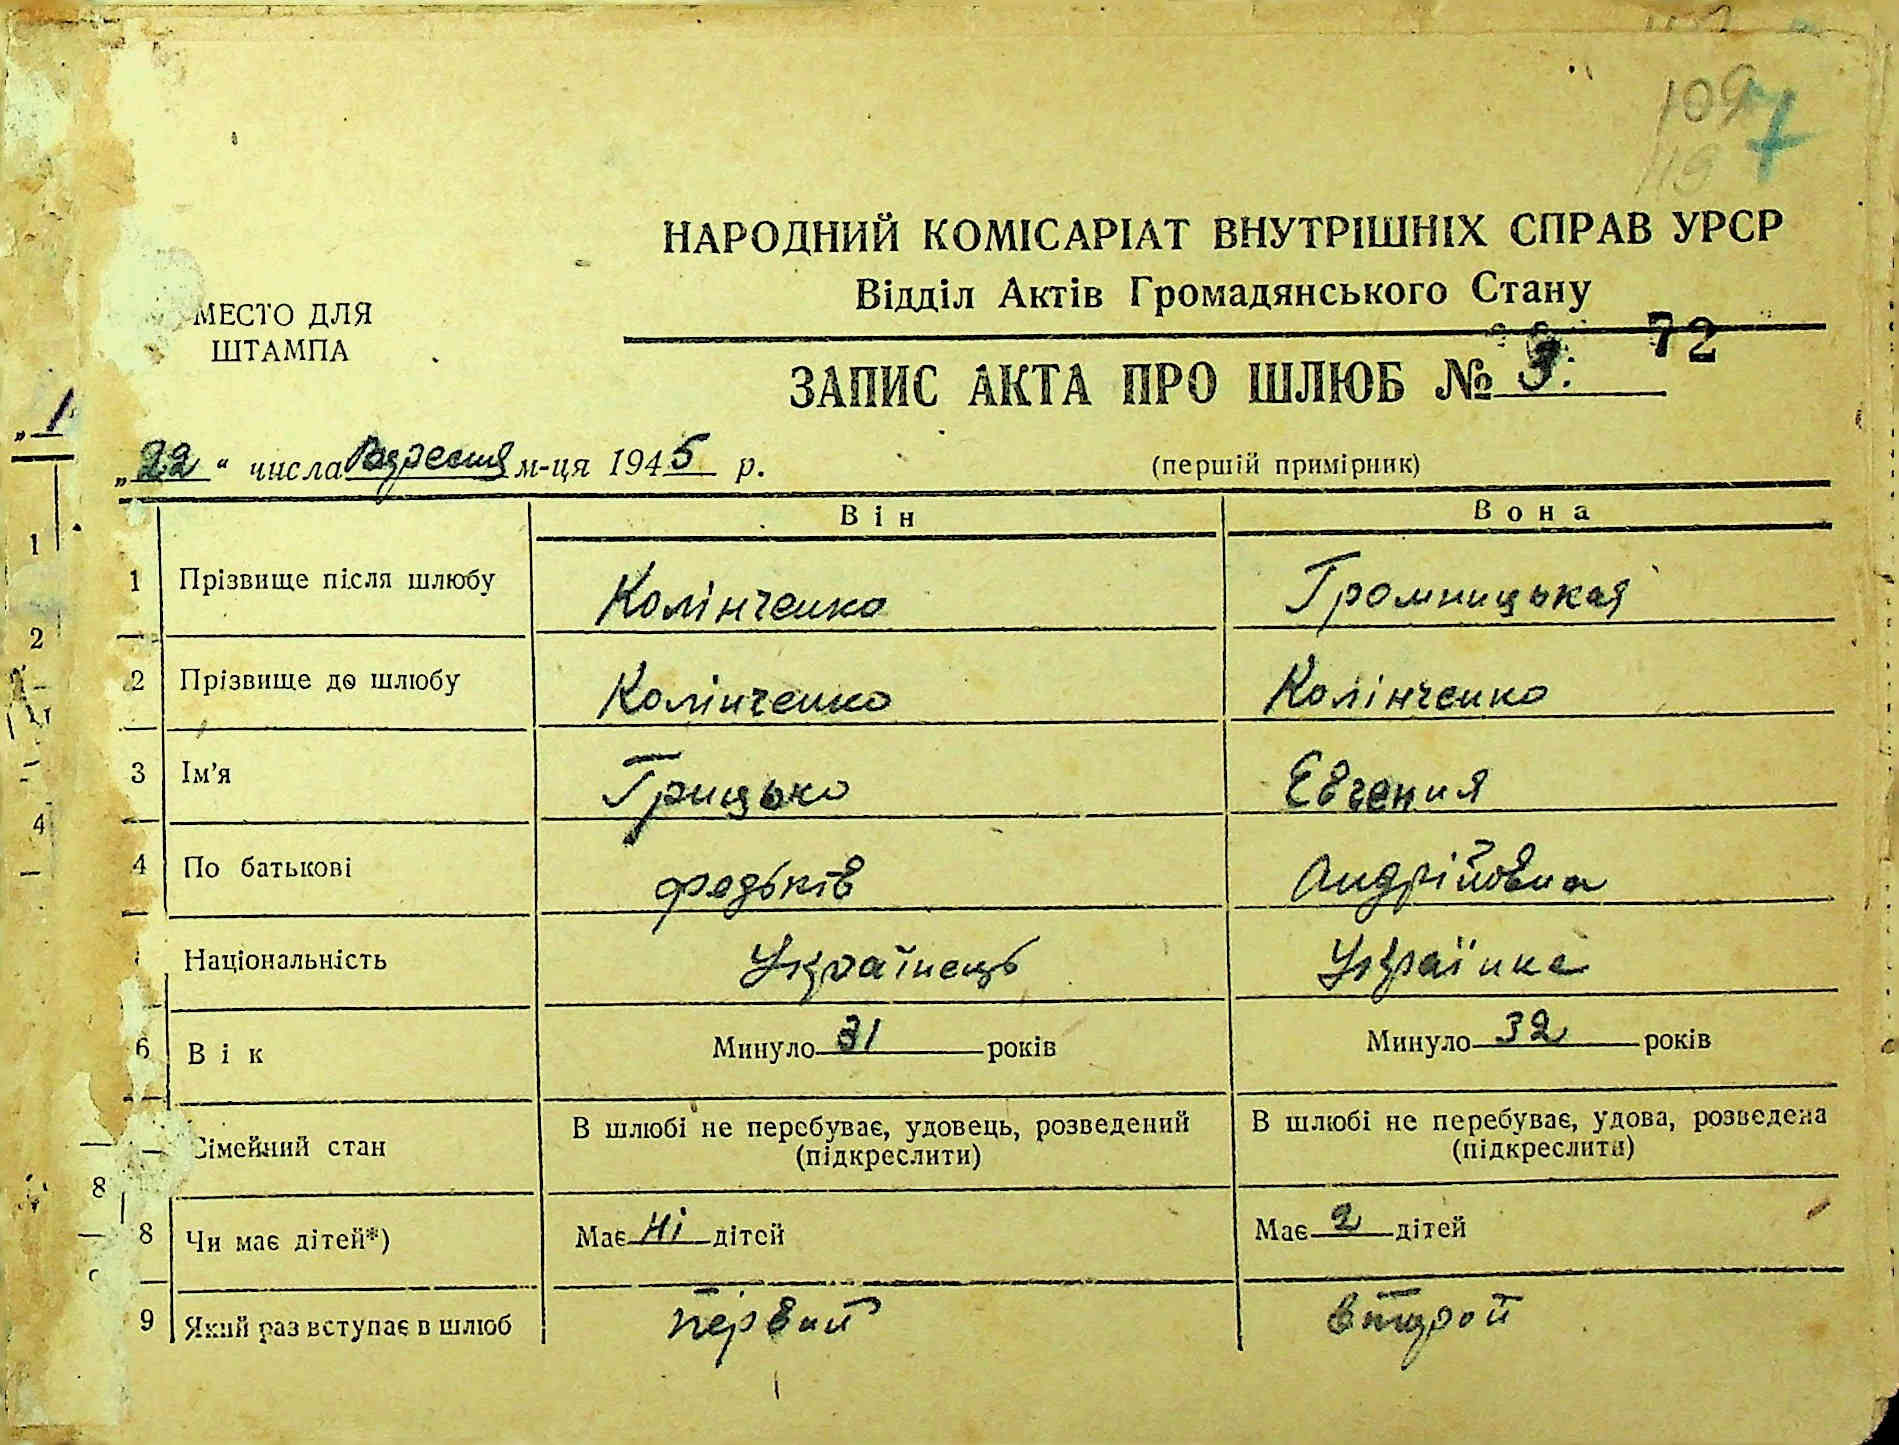 109
7
119
НАРОДНИЙ КОМІСАРІАТ ВНУТРІШНІХ СПРАВ УРСР
Відділ Актів Громадянського Стану
МЕСТО ДЛЯ
ШТАМПА
72
ЗАПИС АКТА ПРО ШЛЮБ № 9.
„22“ числа Вересня м-ця 1945 р. (першій примірник)
Він Вона
1 Прізвище після шлюбу Колінченко Громницькая
2 Прізвище до шлюбу Колінченко Колінченко
3 Ім’я Грицько Евгения
4 По батькові Федьків Андрійовна
Національність Українець Українка
6 Вік Минуло 31 років Минуло 32 років
Сімейний стан В шлюбі не перебуває, удовець, розведений (підкреслити) В шлюбі не перебуває, удова, розведена (підкреслити)
8 Чи має дітей*) Має Ні дітей Має 2 дітей
9 Який раз вступає в шлюб первий второй